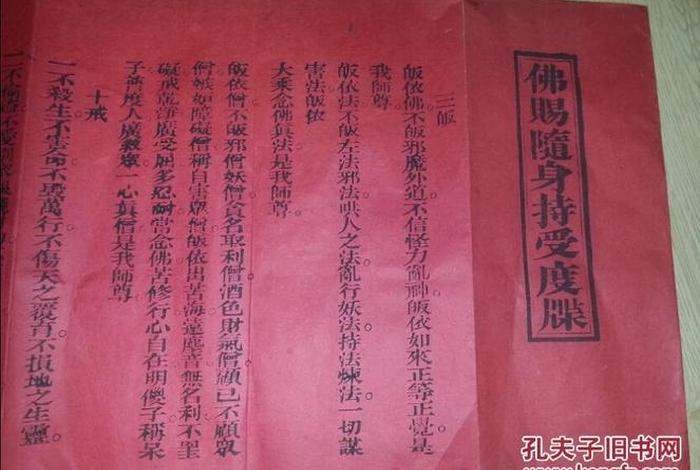 佛賜隨身持受度牒
三皈
皈依佛不皈邪魔外道不信怪力亂神皈依如來正等正覺是
我師尊
皈依法不皈左法邪法哄人之法亂行妖法持法煉法一切謀
害法皈依
大乘念佛真法是我師尊
皈依僧不皈邪僧妖僧貪名取利僧酒色財氣僧顧已不顧眾
僧嫉妬障礙僧稱自害眾僧皈依出苦海遠塵音無名利不罣
礙戒乾淨廣受屈多忍耐當念佛苦修行心自在明傻子稱呆
子普度人廣教眾一心真僧是我師尊
十戒
一不殺生不害命不愚萬行不傷天之覆育不損地之生靈
二不偷盜不
孔夫子旧书网